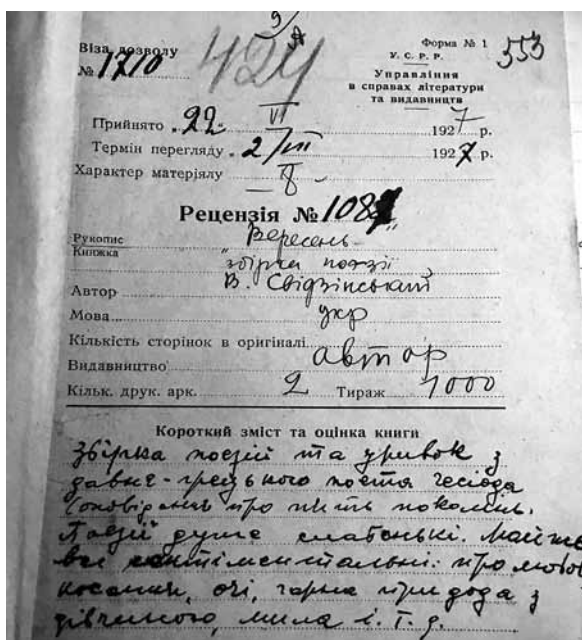 9/А
Віза дозволу
№ 1710
424
Форма № 1
У. С. Р. Р.
553
Управління
в справах літератури
та видавництв
Прийнято 22 VI 1927 р.
Термін перегляду 2/VII 1927 р.
Характер матеріялу
Рецензія № 1087
Рукопис Вересень
Книжка
збірка поезії
Автор В. Свідзінський
Мова укр
Кількість сторінок в оригіналі
Видавництво автор
Кільк. друк. арк. 2 Тираж 1000
Короткий зміст та оцінка книги
Збірка поезій та уривок з
давне-грецького поета Гесіода
(оповідань про пять поколінь.
Поезії дуже слабенькі. Майже
всі сантіментальні: про любов
косинки, очі, гарна природа з
дівчиною, мила і. т. д.